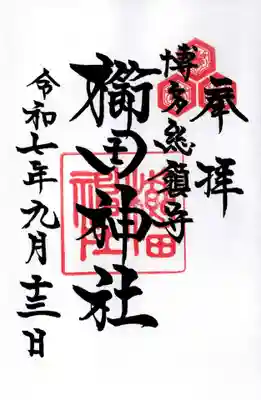 奉拝
博多総鎮守
櫛田神社
令和七年九月十三日
櫛田神社